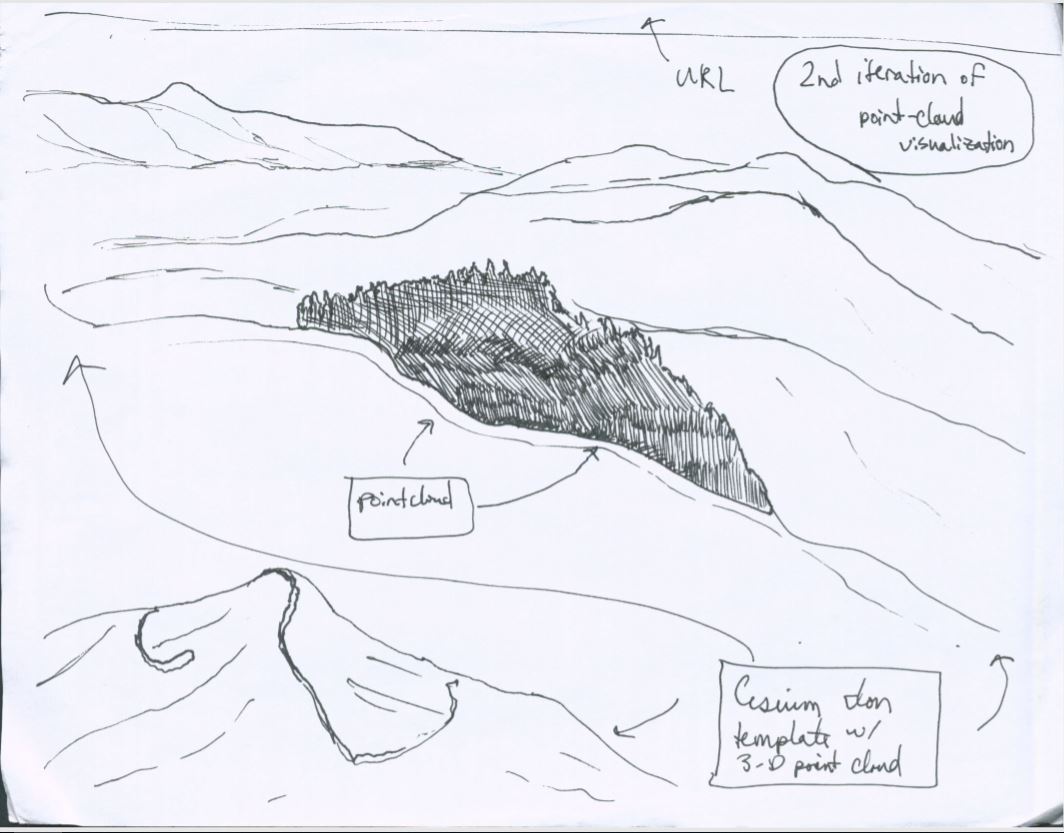 URL
2nd iteration of
point-cloud
visualization
pointcloud
Cesium Ion
template w/
3-D point cloud